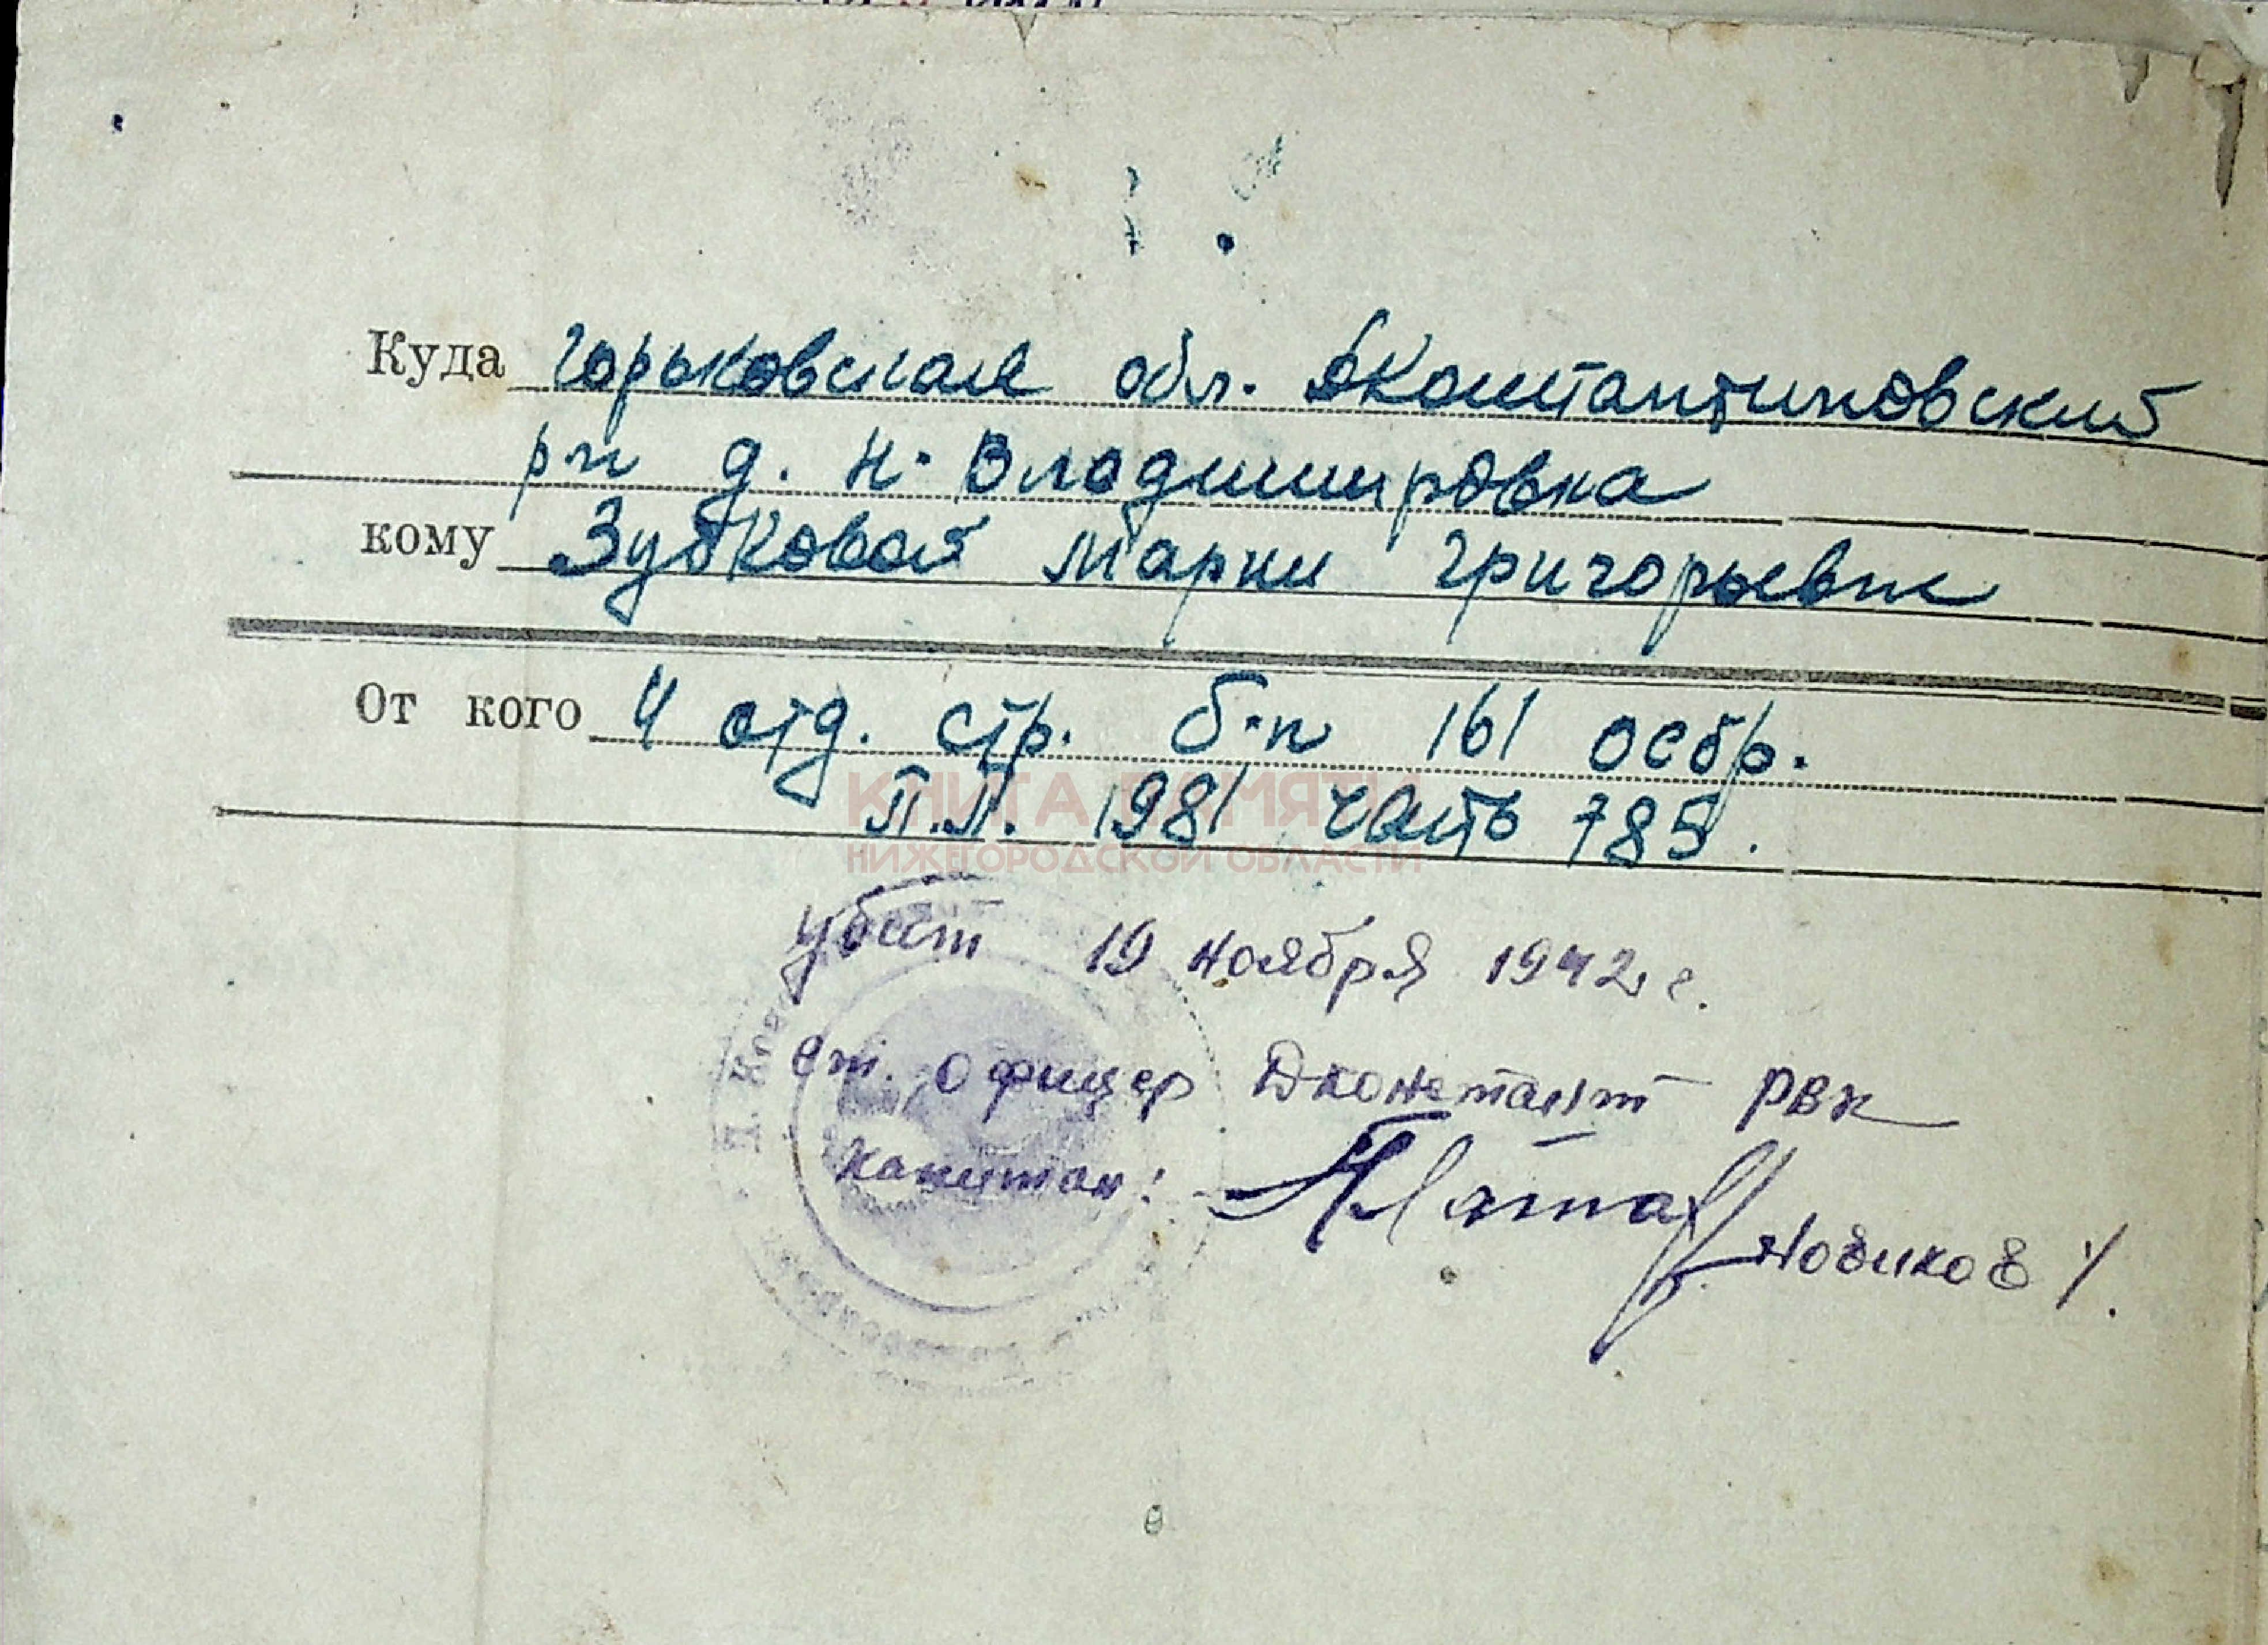 Куда Горьковская обл. ДКонстантиновский
р-н д. Н. Владимировка
кому Зубковой Марии Григорьевне
От кого 4 отд. стр. б-н 161 осбр.
П.П. 1981 часть 785.
КНИГА ПАМЯТИ
НИЖЕГОРОДСКОЙ ОБЛАСТИ
убит 19 ноября 1942 г.
Ст. офицер Дконстант РВК
Капитан:
Новиков /.